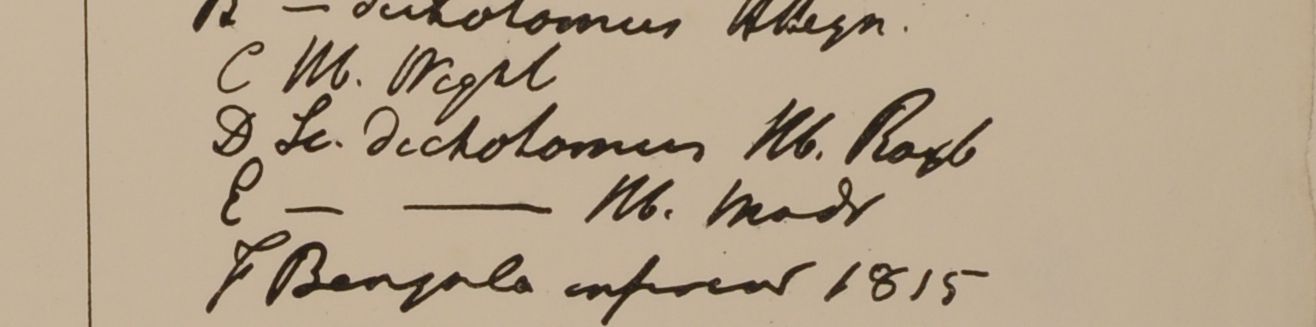 B — dichotomus Hb Heyn.
C Hb. Wight
D Sc. dichotomus Hb. Roxb
E — —— Hb. Madr
F Bengala inferior 1815